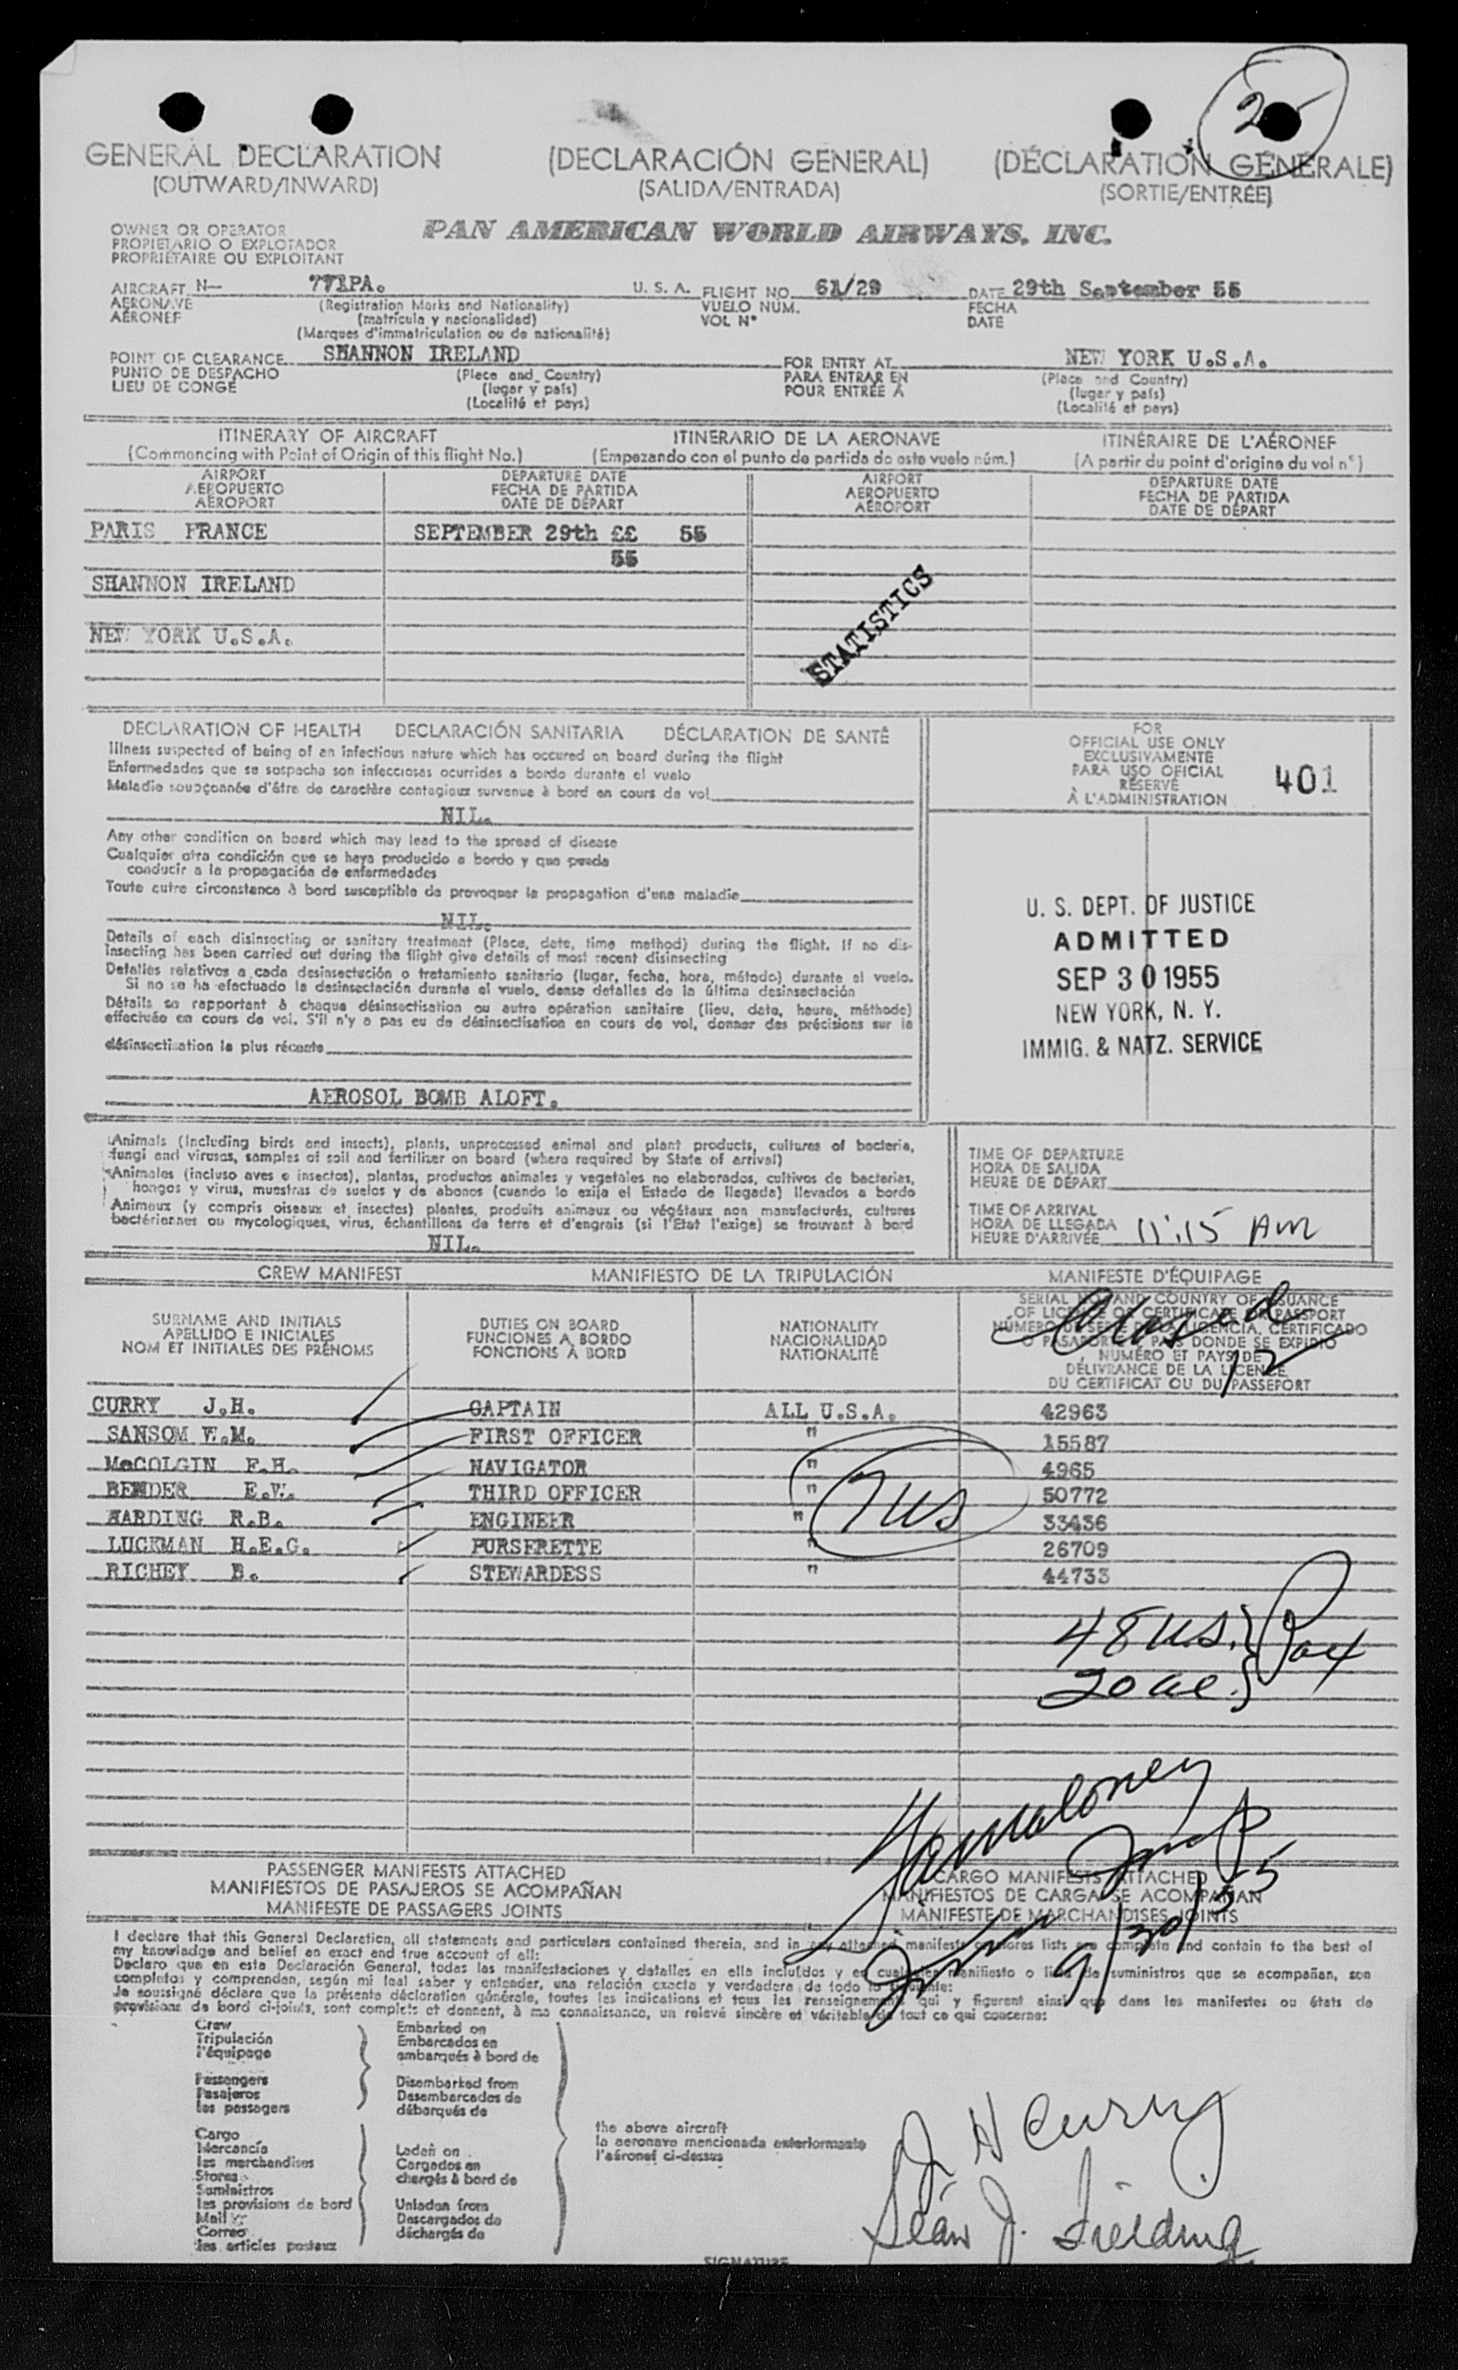 25
GENERAL DECLARATION (DECLARACIÓN GENERAL) (DÉCLARATION GÉNÉRALE)
(OUTWARD/INWARD) (SALIDA/ENTRADA) (SORTIE/ENTRÉE)
OWNER OR OPERATOR
PROPIETARIO O EXPLOTADOR
PROPRIÉTAIRE OU EXPLOITANT
PAN AMERICAN WORLD AIRWAYS, INC.
AIRCRAFT N— 771PA. U. S. A. FLIGHT NO. 61/29 DATE 29th September 55
AERONAVE (Registration Marks and Nationality) VUELO NUM. FECHA
AÉRONEF (matrícula y nacionalidad) VOL Nº DATE
(Marques d'immatriculation ou de nationalité)
POINT OF CLEARANCE SHANNON IRELAND FOR ENTRY AT NEW YORK U.S.A.
PUNTO DE DESPACHO (Place and Country) PARA ENTRAR EN (Place and Country)
LIEU DE CONGÉ (lugar y país) POUR ENTRÉE À (lugar y país)
(Localité et pays) (Localité et pays)
ITINERARY OF AIRCRAFT ITINERARIO DE LA AERONAVE ITINÉRAIRE DE L'AÉRONEF
(Commencing with Point of Origin of this flight No.) (Empezando con el punto de partida de este vuelo núm.) (A partir du point d'origine du vol nº)
AIRPORT DEPARTURE DATE AIRPORT DEPARTURE DATE
AEROPUERTO FECHA DE PARTIDA AEROPUERTO FECHA DE PARTIDA
AÉROPORT DATE DE DÉPART AÉROPORT DATE DE DÉPART
PARIS FRANCE SEPTEMBER 29th ££ 55
55
SHANNON IRELAND
NEW YORK U.S.A.
STATISTICS
DECLARATION OF HEALTH DECLARACIÓN SANITARIA DÉCLARATION DE SANTÉ
Illness suspected of being of an infectious nature which has occured on board during the flight
Enfermedades que se sospecha son infecciosas ocurridas a bordo durante el vuelo
Maladie soupçonnée d'être de caractère contagieux survenue à bord en cours de vol
NIL.
Any other condition on board which may lead to the spread of disease
Cualquier otra condición que se haya producido a bordo y que pueda
conducir a la propagación de enfermedades
Toute autre circonstance à bord susceptible de provoquer la propagation d'une maladie
NIL.
Details of each disinsecting or sanitary treatment (Place, date, time method) during the flight. If no dis-
insecting has been carried out during the flight give details of most recent disinsecting
Detalles relativos a cada desinsectución o tratamiento sanitario (lugar, fecha, hora, método) durante el vuelo.
Si no se ha efectuado la desinsectación durante el vuelo, dense detalles de la última desinsectación
Détails se rapportant à chaque désinsectisation ou autre opération sanitaire (lieu, date, heure, méthode)
effectuée en cours de vol. S'il n'y a pas eu de désinsectisation en cours de vol, donner des précisions sur la
désinsectisation la plus récente
AEROSOL BOMB ALOFT.
FOR
OFFICIAL USE ONLY
EXCLUSIVAMENTE
PARA USO OFICIAL
RÉSERVÉ
À L'ADMINISTRATION
401
U. S. DEPT. OF JUSTICE
ADMITTED
SEP 30 1955
NEW YORK, N. Y.
IMMIG. & NATZ. SERVICE
Animals (Including birds and insects), plants, unprocessed animal and plant products, cultures of bacteria,
fungi and viruses, samples of soil and fertilizer on board (where required by State of arrival)
Animales (incluso aves e insectos), plantas, productos animales y vegetales no elaborados, cultivos de bacterias,
hongos y virus, muestras de suelos y de abonos (cuando lo exija el Estado de llegada) llevados a bordo
Animaux (y compris oiseaux et insectes) plantes, produits animaux ou végétaux non manufacturés, cultures
bactériennes ou mycologiques, virus, échantillons de terre et d'engrais (si l'Etat l'exige) se trouvant à bord
NIL.
TIME OF DEPARTURE
HORA DE SALIDA
HEURE DE DÉPART
TIME OF ARRIVAL
HORA DE LLEGADA
HEURE D'ARRIVÉE 11:15 AM
CREW MANIFEST MANIFIESTO DE LA TRIPULACIÓN MANIFESTE D'ÉQUIPAGE
SURNAME AND INITIALS
APELLIDO E INICIALES
NOM ET INITIALES DES PRÉNOMS
DUTIES ON BOARD
FUNCIONES A BORDO
FONCTIONS À BORD
NATIONALITY
NACIONALIDAD
NATIONALITÉ
SERIAL NO. AND COUNTRY OF ISSUANCE
OF LICENSE OR CERTIFICATE OR PASSPORT
NÚMERO DE SERIE DE LA LICENCIA, CERTIFICADO
O PASAPORTE Y PAÍS DONDE SE EXPIDIO
NUMÉRO ET PAYS DE
DÉLIVRANCE DE LA LICENCE
DU CERTIFICAT OU DU PASSEPORT
Closed
12
CURRY J.H. CAPTAIN ALL U.S.A. 42963
SANSOM W.M. FIRST OFFICER " 15587
McCOLGIN F.H. NAVIGATOR " 4965
BENDER E.W. THIRD OFFICER " 50772
HARDING R.B. ENGINEER " 33436
LUCKMAN H.E.G. PURSERETTE " 26709
RICHEY B. STEWARDESS " 44733
7 US
48 US. } Pax
20 al. }
Maloney
9/30/55
PASSENGER MANIFESTS ATTACHED CARGO MANIFESTS ATTACHED
MANIFIESTOS DE PASAJEROS SE ACOMPAÑAN MANIFIESTOS DE CARGA SE ACOMPAÑAN
MANIFESTE DE PASSAGERS JOINTS MANIFESTE DE MARCHANDISES JOINTS
I declare that this General Declaration, all statements and particulars contained therein, and in any attached manifests or stores lists are complete and contain to the best of
my knowledge and belief an exact and true account of all:
Declaro que en esta Declaración General, todas las manifestaciones y detalles en ella incluídos y en cualquier manifiesto o lista de suministros que se acompañan, son
completos y comprenden, según mi leal saber y entender, una relación exacta y verdadera de todo lo siguiente:
Je soussigné déclare que la présente déclaration générale, toutes les indications et tous les renseignements qui y figurent ainsi que dans les manifestes ou états de
provisions de bord ci-joints, sont complets et donnent, à ma connaissance, un relevé sincère et véritable de tout ce qui concerne:
Crew
Tripulación
l'équipage
Passengers
Pasajeros
les passagers
Cargo
Mercancía
les marchandises
Stores
Suministros
les provisions de bord
Mail
Correo
les articles postaux
Embarked on
Embarcados en
embarqués à bord de
Disembarked from
Desembarcados de
débarqués de
Laden on
Cargados en
chargés à bord de
Unladen from
Descargados de
déchargés de
the above aircraft
la aeronave mencionada anteriormente
l'aéronef ci-dessus
J H Curry
Seán J. Fielding
SIGNATURE